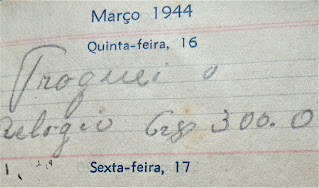 Março 1944
Quinta-feira, 16
Troquei o
Relogio Cr$ 300.0
Sexta-feira, 17